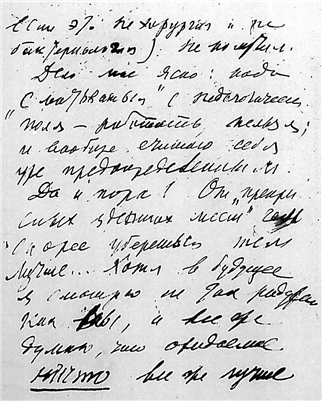 если это не хирургия и не
бактериология) не полезл.
Дело мне ясно: надо
"сматываться" с педологическ
поля – работать, нельзя;
и вообще считаю себя
уже предопределенным.
Да и пора! От "прекра
сных здешних мест"
скорее уберешься тем
лучше... Хотя в будущее
я смотрю не так радужно
как Вы, и все же
думаю, что ожидаемое
ничто все же лучше